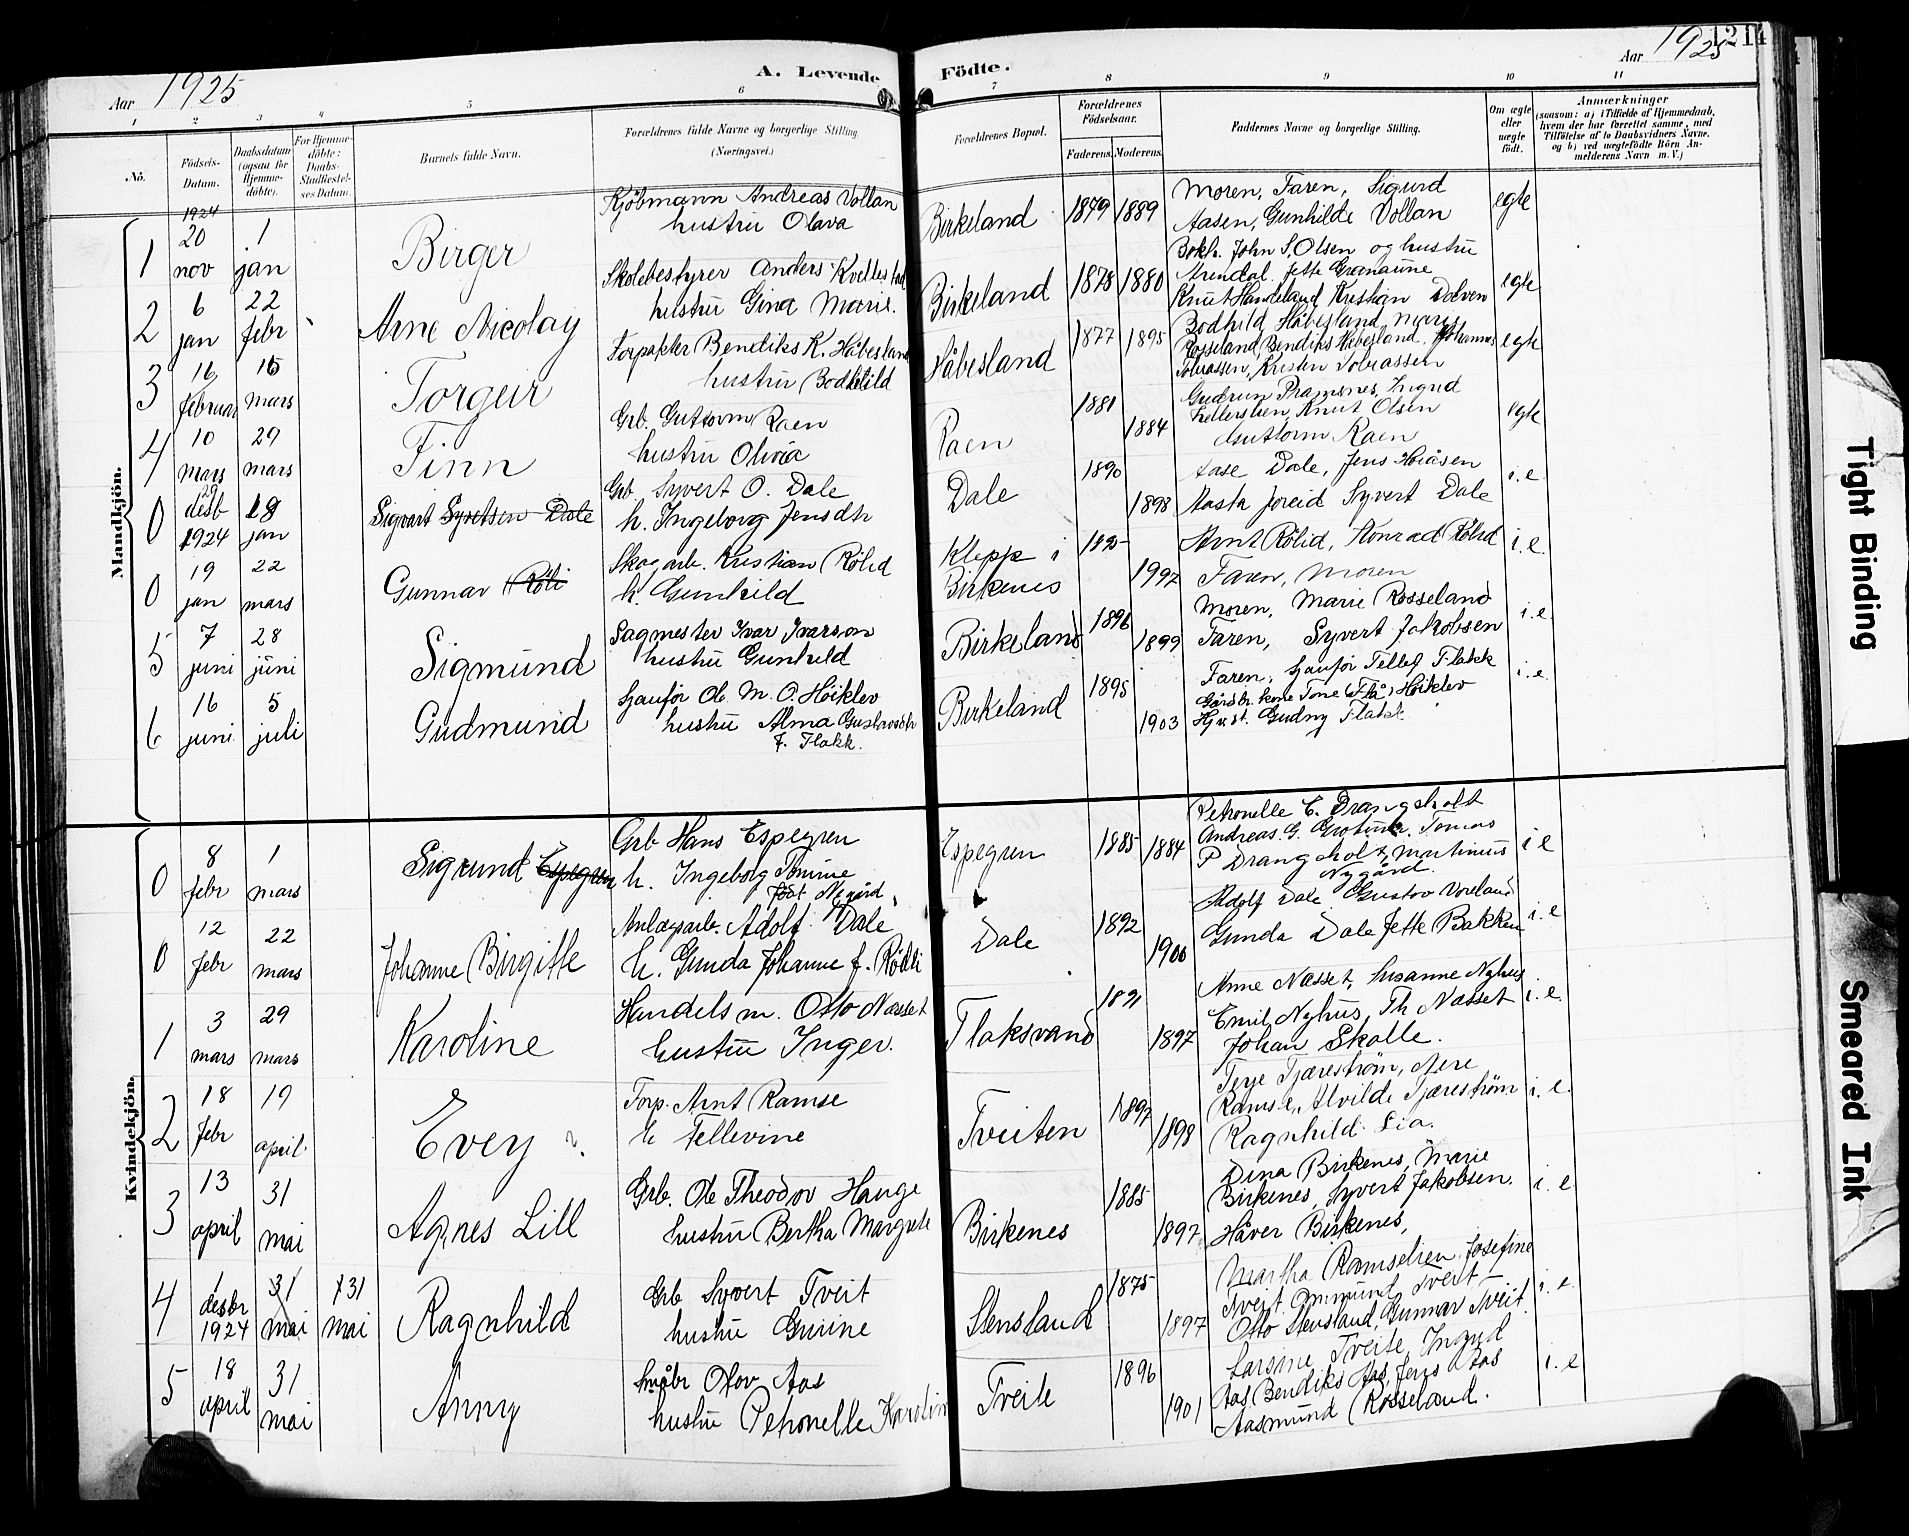 Aar 1925
A. Levende
Födte.
Aar 1925
1214
1
2
3
4
5
6
7
8
9
10
11
No.
Födsels-
Datum.
Daabsdatum
(ogsaa for
Hjemme-
döbte).
For Hjemme-
döbte:
Daabs-
Stadfæstel-
ses Datum.
Barnets fulde Navn.
Forældrenes fulde Navne og borgerlige Stilling.
(Næringsvei.)
Forældrenes Bopæl.
Forældrenes
Födselsaar.
Faderens.
Moderens.
Faddernes Navne og borgerlige Stilling.
Om ægte
eller
uægte
födt.
Anmærkninger
(saasom: a) i Tilfælde af Hjemmedaab,
hvem der har forrettet samme, med
Tilföielse af to Daabsvidners Navne.
og b) ved uægtefödte Börn An-
melderens Navn m. V.)
Mandkjön.
1
1924
20
nov
1
jan
Birger
Kjöbmann Andreas Vollan
hustru Olava
Birkeland
1879
1889
Moren, Faren, Sigurd
Aasen, Gunhilde Vollan
Bokh. John S. Olsen og hustru
egte
2
6
jan
22
febr
Arne Nicolay
Skolebestyrer Anders Kvellestad
hustru Gina Marie.
Birkeland
1878
1880
Arendal. Jette
Knut Handeland Kristian Dolven
egte
3
16
februar
15
mars
Torgeir
Forpakter Bendiks K. Håbesland
hustru Bodhild
Håbesland
1877
1895
Bodhild Håbesland, Marie
Rosseland, Bendiks Håbesland, Johannes
Tobiassen, Kristen Tobiassen
egte
4
10
mars
29
mars
Finn
Grb. Guttorm Raen
hustru Olivia
Raen
1881
1884
Gudrun Ingrid
Knut Olsen
Guttorm Raen
egte
0
29
desb
1924
18
jan
Sigvart Syvertsen Dale
Grb Syvert O. Dale
h. Ingeborg Jensdtr
Dale
1890
1898
Aase Dale, Jens Höiåsen
Aasta Joreid Syvert Dale
i.e.
0
19
jan
22
mars
Gunnar Röli
Skogarb. Kristian Rölid
h. Gunhild
Klepp i
Birkenes
1895
1997
Arnt Rölid, Konrad Rölid
Faren, Moren
i.e.
5
7
juni
28
juni
Sigmund
Sagmester Ivar Ivarson
hustru Gunhild
Birkeland
1896
1899
Moren, Marie Rosseland
Faren, Syvert Jakobsen
i.e
6
16
juni
5
juli
Gudmund
Sjauför Ole M. O. Höiklev
hustru Alma Gustavsdtr
f. Flakk.
Birkeland
1895
1903
Faren, Sjauför Tellef Flakk
Gårdbr. kone Tone (Flå) Höiklev
Hjvst. Gudny Flakk
i.e
Kvindekjön.
0
8
febr
1
mars
Sigrund Espegren
Grb Hans Espegren
h. Ingeborg Tomine
födt Nygård
Espegren
1885
1884
Petronelle E. Drangsholt
Andreas G. Tomas
P Drangsholt, Martinius
Nygård.
i e
0
12
febr
22
mars
Johanne Birgitte
Anlægsarb. Adolf Dale
h. Gunda Johanne f. Rödli
Dale
1892
1900
Adolf Dale Gustov Voreland
Gunda Dale Jette Bakken
i. e
1
3
mars
29
mars
Karoline
Handels m. Otto Næsset
hustru Inger.
Flaksvand
1891
1897
Anne Næsset, Susanne Nyhus
Emil Nyhus, Th Næsset
Johan Skolle.
i. e.
2
18
febr
19
april
Evey ?
Forp. Arnt Ramse
h Tellevine
Tveiten
1897
1898
Terje Tjærström, Aere
Ramse, Alvilde Tjæreström
Ragnhild Lia.
i. e.
3
13
april
31
mai
Agnes Lill
Grb. Ole Theodor Hauge
hustru Bertha Margrete
Birkenes
1885
1897
Dina Birkenes, Marie
Birkenes, Syvert Jakobsen.
Håver Birkenes,
i. e
4
1
desbr
1924
31
mai
31
mai
Ragnhild
Grb Syvert Tveit
hustru Gurine
Stensland
1875
1897
Martha Ramselien, Josefine
Tveit, Ommund Tveit
Otto Stensland, Gunnar Tveit.
i. e.
5
18
april
31
mai
Anny
Småbr Olov Aas
hustru Petronelle Karolin
Tveite
1896
1901
Larsine Tveite, Ingrid
Aas, Bendiks Aas, Jens Aas
Aasmund Rosseland.
i. e
Tight Binding
Smeared Ink